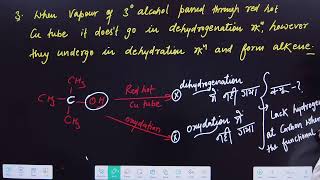 3. When vapour of 3° alcohol passed through red hot
Cu tube it does't go in dehydrogenation rxⁿ, however
they undergo in dehydration rxⁿ and form alkene.
CH₃
CH₃ C OH
CH₃
Red hot
Cu tube
oxydation
dehydrogenation
में नहीं गया
oxydation में
नहीं गया
क्यूँ ?
Lack hydrogen
at Carbon
the functional